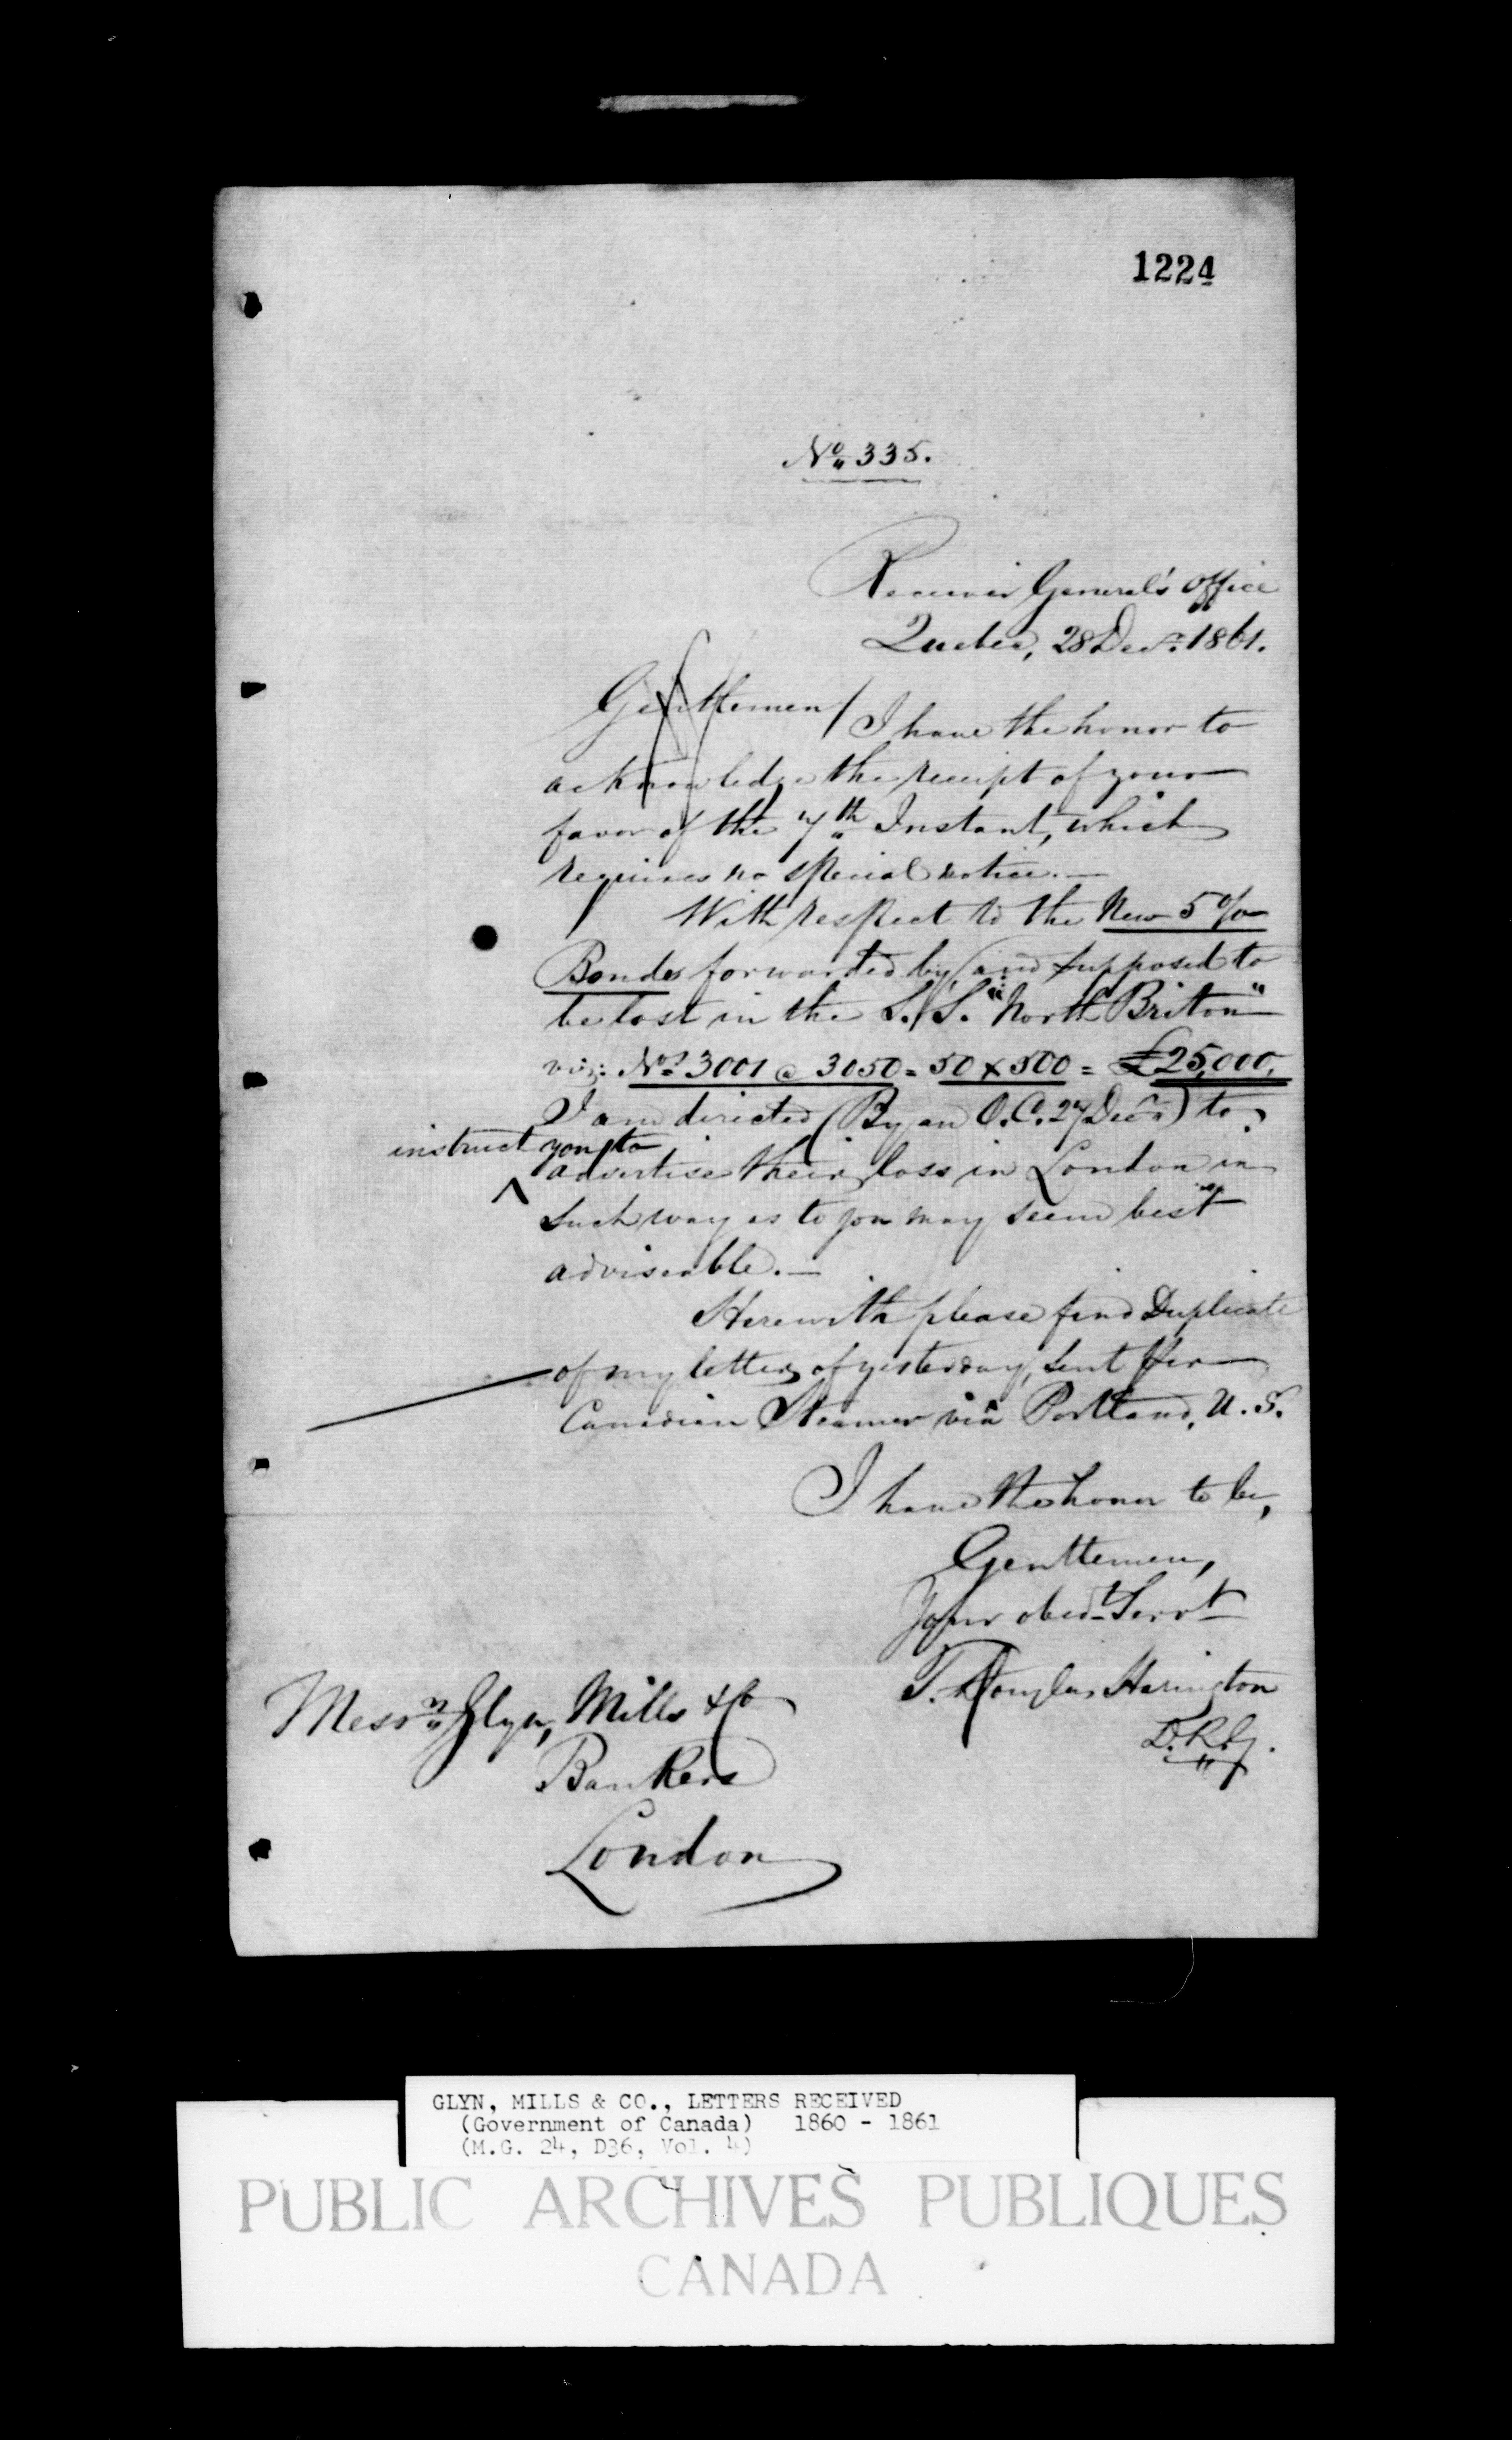 1224
No. 335.
Receiver General's Office
Quebec, 28 Decr. 1861.
Gentlemen / I have the honor to
acknowledge the receipt of your
favor of the 7th Instant, which
requires no special notice. —
With respect to the New 5 %
Bonds forwarded by (and supposed to
be lost in the S. S. "North Briton"
viz: Nos 3001 @ 3050 = 50 x 500 = £25,000,
I am directed (By an O.C. 27 Decr.) to
instruct you to
^ advertise their loss in London in
such way as to you may seem best
adviseable. —
Herewith please find Duplicate
of my letter of yesterday, sent per
Canadian Steamer via Portland, U.S.
I have the honor to be,
Gentlemen,
Your obedt Servt
T. Douglas Harington
D.R.G.
Messrs Glyn, Mills & Co
Bankers
London
GLYN, MILLS & CO., LETTERS RECEIVED
(Government of Canada) 1860 - 1861
(M.G. 24, D36, Vol. 4)
PUBLIC ARCHIVES PUBLIQUES
CANADA